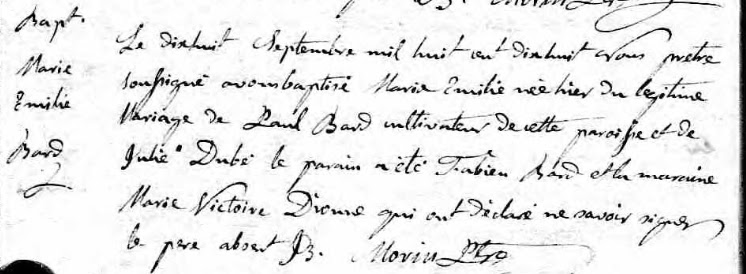 Bapt.
Marie
Emilie
Bard
Le dixhuit Septembre mil huit cent dixhuit nous prêtre
soussigné avons baptisé Marie Emilie née hier du legitime
Mariage de Paul Bard cultivateur de cette paroisse et de
Julie Dubé le parain a été Fabien Bard et la maraine
Marie Victoire Dionne qui ont déclaré ne savoir signer
le pere absent JB. Morin Ptre